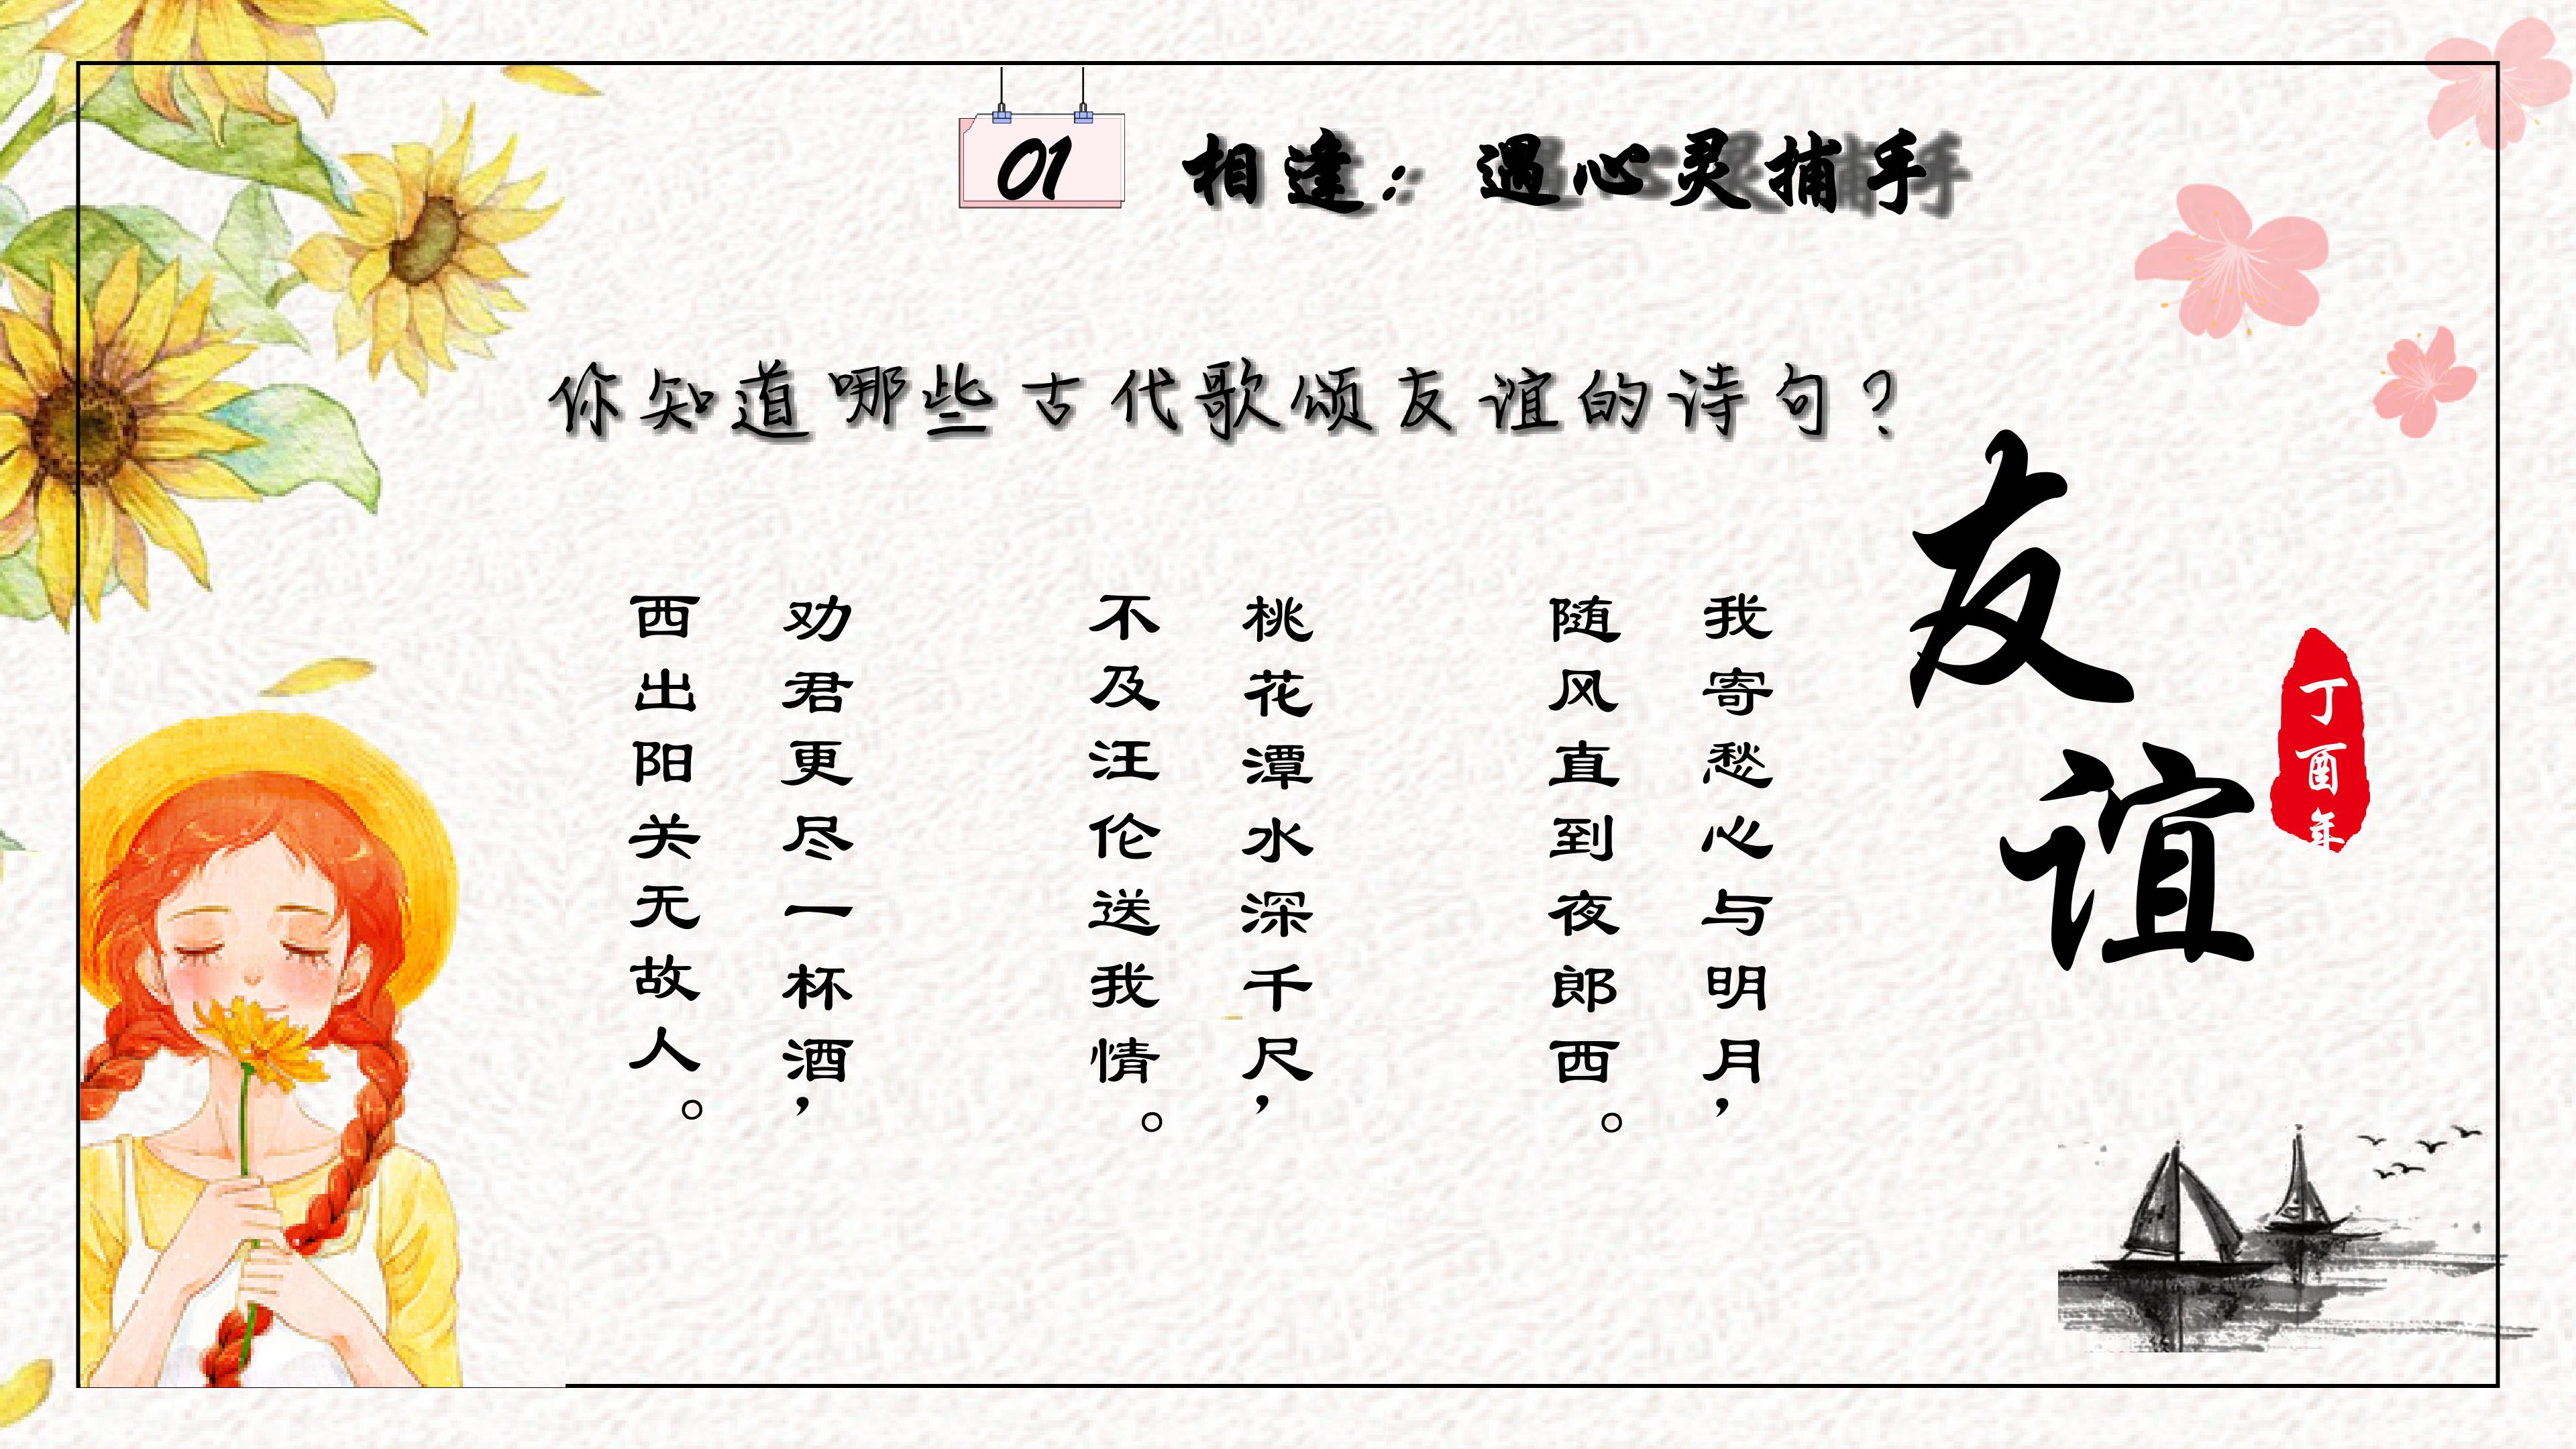 01
相逢：遇心灵捕手
你知道哪些古代歌颂友谊的诗句？
友谊
丁酉年
我寄愁心与明月，
随风直到夜郎西。
桃花潭水深千尺，
不及汪伦送我情。
劝君更尽一杯酒，
西出阳关无故人。